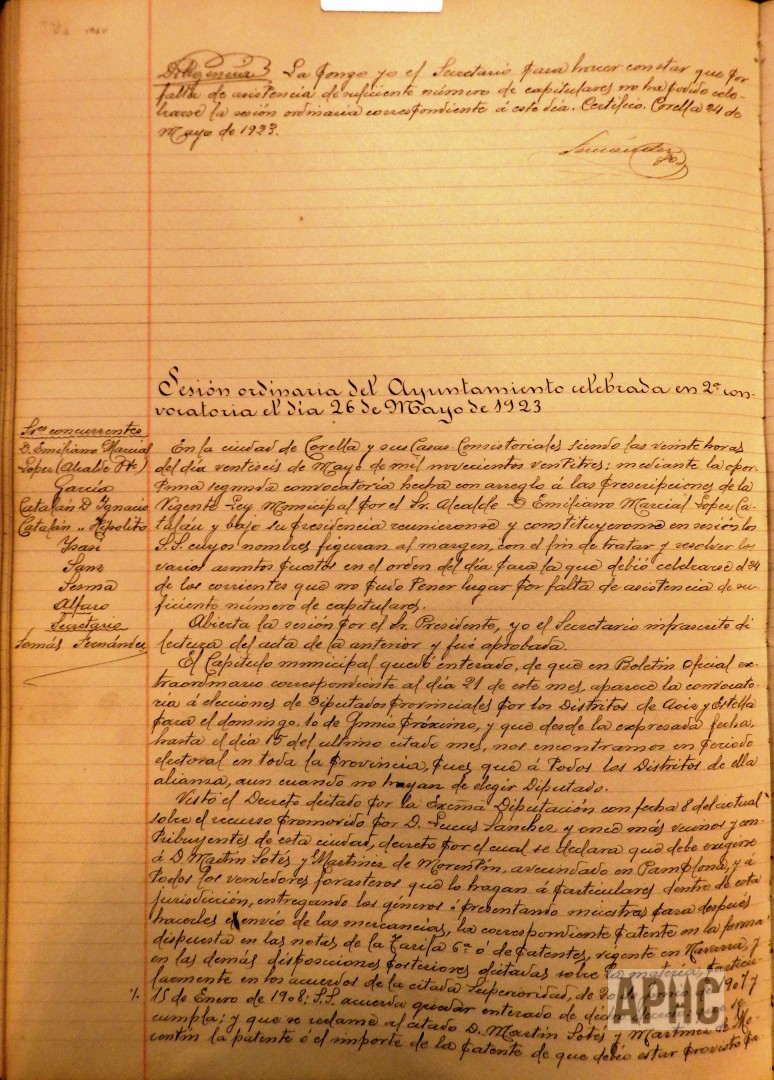 Diligencia La pongo yo el Secretario para hacer constar que por
falta de asistencia de suficiente número de capitulares no ha podido cele-
brarse la sesión ordinaria correspondiente á este día. Certifico. Corella 24 de
Mayo de 1923.
Sesión ordinaria del Ayuntamiento celebrada en 2ª con-
vocatoria el día 26 de Mayo de 1923
Sres concurrentes
D. Emiliano Marcial
López (Alcalde Pte)
García
Catalán D. Ignacio
Catalán " Hipólito
Ysasi
Sanz
Sesma
Alfaro
Secretario
Tomás Fernández
En la ciudad de Corella y sus Casas Consistoriales siendo las veinte horas
del día ventiseis de Mayo de mil novecientos ventitres; mediante la opor-
tuna segunda convocatoria hecha con arreglo á las prescripciones de la
Vigente Ley Municipal por el Sr. Alcalde D. Emiliano Marcial López Ca-
talán y bajo su presidencia reunieronse y constituyeronse en sesión los
S.S. cuyos nombres figuran al margen, con el fin de tratar y resolver los
varios asuntos puestos en el orden del día para la que debió celebrarse el 24
de los corrientes que no pudo tener lugar por falta de asistencia de su-
ficiente número de capitulares.
Abierta la sesión por el Sr. Presidente, yo el Secretario infrascrito di
lectura del acta de la anterior y fué aprobada.
El Capítulo municipal quedó enterado, de que en Boletín Oficial ex-
traordinario correspondiente al día 21 de este mes, aparece la convocato-
ria á elecciones de Diputados provinciales por los Distritos de Aoiz y Estella
para el domingo, 10 de Junio próximo, y que desde la expresada fecha,
hasta el día 15 del ultimo citado mes, nos encontramos en periodo
electoral en toda la provincia, pues que á todos los Distritos de ella
alianza, aun cuando no hayan de elegir Diputado.
Visto el Decreto dictado por la Excma Diputación con fecha 8 del actual
sobre el recurso promovido por D. Lucas Sanchez y once más vecinos y con-
tribuyentes de esta ciudad, decreto por el cual se declara que debe exigirse
á D. Martín Sotés y Martinez de Morentín, avecindado en Pamplona, y á
todos los vendedores forasteros que lo hagan á particulares dentro de esta
jurisdicción, entregando los géneros ó presentando muestras para después
hacerles el envío de las mercancías, la correspondiente patente en la forma
dispuesta en las notas de la Tarifa 6ª ó de patentes, vigente en Navarra, y
en las demás disposiciones posteriores dictadas sobre la materia, particu-
larmente en los acuerdos de la citada Superioridad, de 20 1907 y
15 de Enero de 1908: S.S. acuerda quedar enterado de
cumpla; y que se reclame al citado D. Martín Sotés y Martinez de Mo-
rentín la patente ó el importe de la patente de que debió estar provisto
APHC